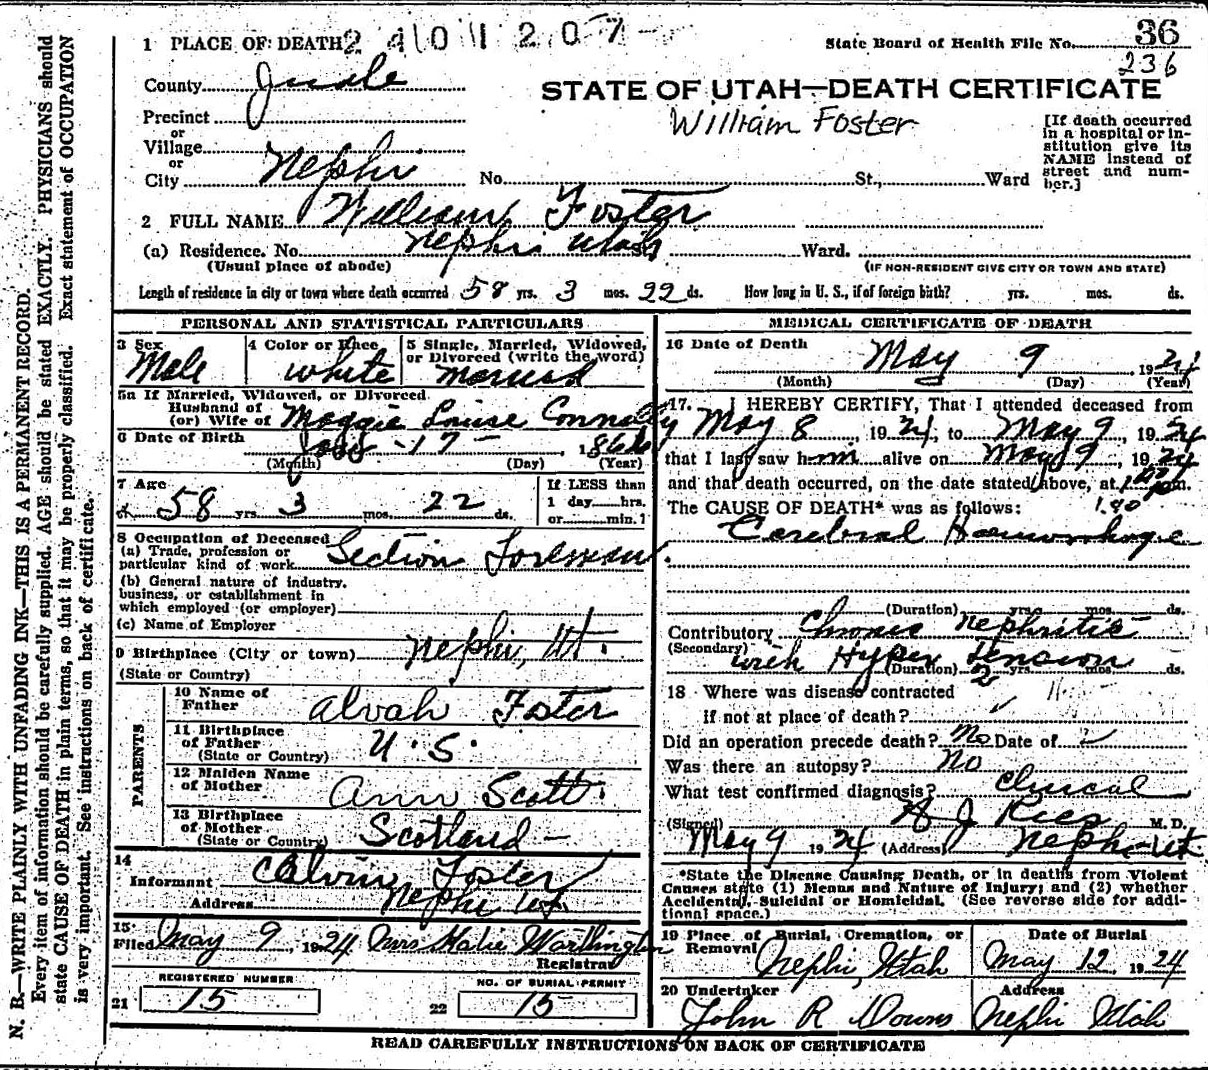 36
State Board of Health File No.
236
1 PLACE OF DEATH 2401207
County Juab
STATE OF UTAH—DEATH CERTIFICATE
William Foster
Precinct
or
Village
or
City Nephi No. St., Ward
[If death occurred
in a hospital or in-
stitution give its
NAME instead of
street and num-
ber.]
2 FULL NAME William Foster
(a) Residence. No. Nephi Utah St. Ward.
(Usual place of abode)
(IF NON-RESIDENT GIVE CITY OR TOWN AND STATE)
Length of residence in city or town where death occurred 58 yrs. 3 mos. 22 ds. How long in U. S., if of foreign birth? yrs. mos. ds.
PERSONAL AND STATISTICAL PARTICULARS
3 Sex
Male
4 Color or Race
white
5 Single, Married, Widowed,
or Divorced (write the word)
married
5a If Married, Widowed, or Divorced
Husband of
(or) Wife of Maggie Louise Connelly
6 Date of Birth 17 1866
(Month) (Day) (Year)
7 Age
58 yrs. 3 mos. 22 ds.
If LESS than
1 day hrs.
or min.?
8 Occupation of Deceased
(a) Trade, profession or
particular kind of work Section Foreman
(b) General nature of industry,
business, or establishment in
which employed (or employer)
(c) Name of Employer
9 Birthplace (City or town) Nephi, Ut.
(State or Country)
PARENTS
10 Name of
Father Alvah Foster
11 Birthplace
of Father
(State or Country) U. S.
12 Maiden Name
of Mother Ann Scott
13 Birthplace
of Mother
(State or Country) Scotland
14
Informant Calvin Foster
Address Nephi Ut.
15
Filed May 9, 1924 Mrs Katie Worthington
Registrar
REGISTERED NUMBER
21 15
NO. OF BURIAL PERMIT
22 15
MEDICAL CERTIFICATE OF DEATH
16 Date of Death
May 9 1924
(Month) (Day) (Year)
17. I HEREBY CERTIFY, That I attended deceased from
May 8, 1924, to May 9, 1924
that I last saw him alive on May 9, 1924
and that death occurred, on the date stated above, at m.
1.30
The CAUSE OF DEATH* was as follows:
Cerebral Haemorrhage
(Duration) yrs. mos. ds.
Contributory Chronic Nephritis
(Secondary) with Hyper Tension
(Duration) 2 yrs. mos. ds.
18 Where was disease contracted
if not at place of death?
Did an operation precede death? No Date of
Was there an autopsy? No
What test confirmed diagnosis? Clinical
(Signed) J Rees M. D.
May 9 1924 (Address) Nephi Ut.
*State the Disease Causing Death, or in deaths from Violent
Causes state (1) Means and Nature of Injury; and (2) whether
Accidental, Suicidal or Homicidal. (See reverse side for addi-
tional space.)
19 Place of Burial, Cremation, or
Removal
Nephi, Utah
Date of Burial
May 12 1924
20 Undertaker
John R Downs
Address
Nephi Utah
READ CAREFULLY INSTRUCTIONS ON BACK OF CERTIFICATE
N. B.—WRITE PLAINLY WITH UNFADING INK—THIS IS A PERMANENT RECORD.
Every item of information should be carefully supplied. AGE should be stated EXACTLY. PHYSICIANS should
state CAUSE OF DEATH in plain terms, so that it may be properly classified. Exact statement of OCCUPATION
is very important. See instructions on back of certificate.